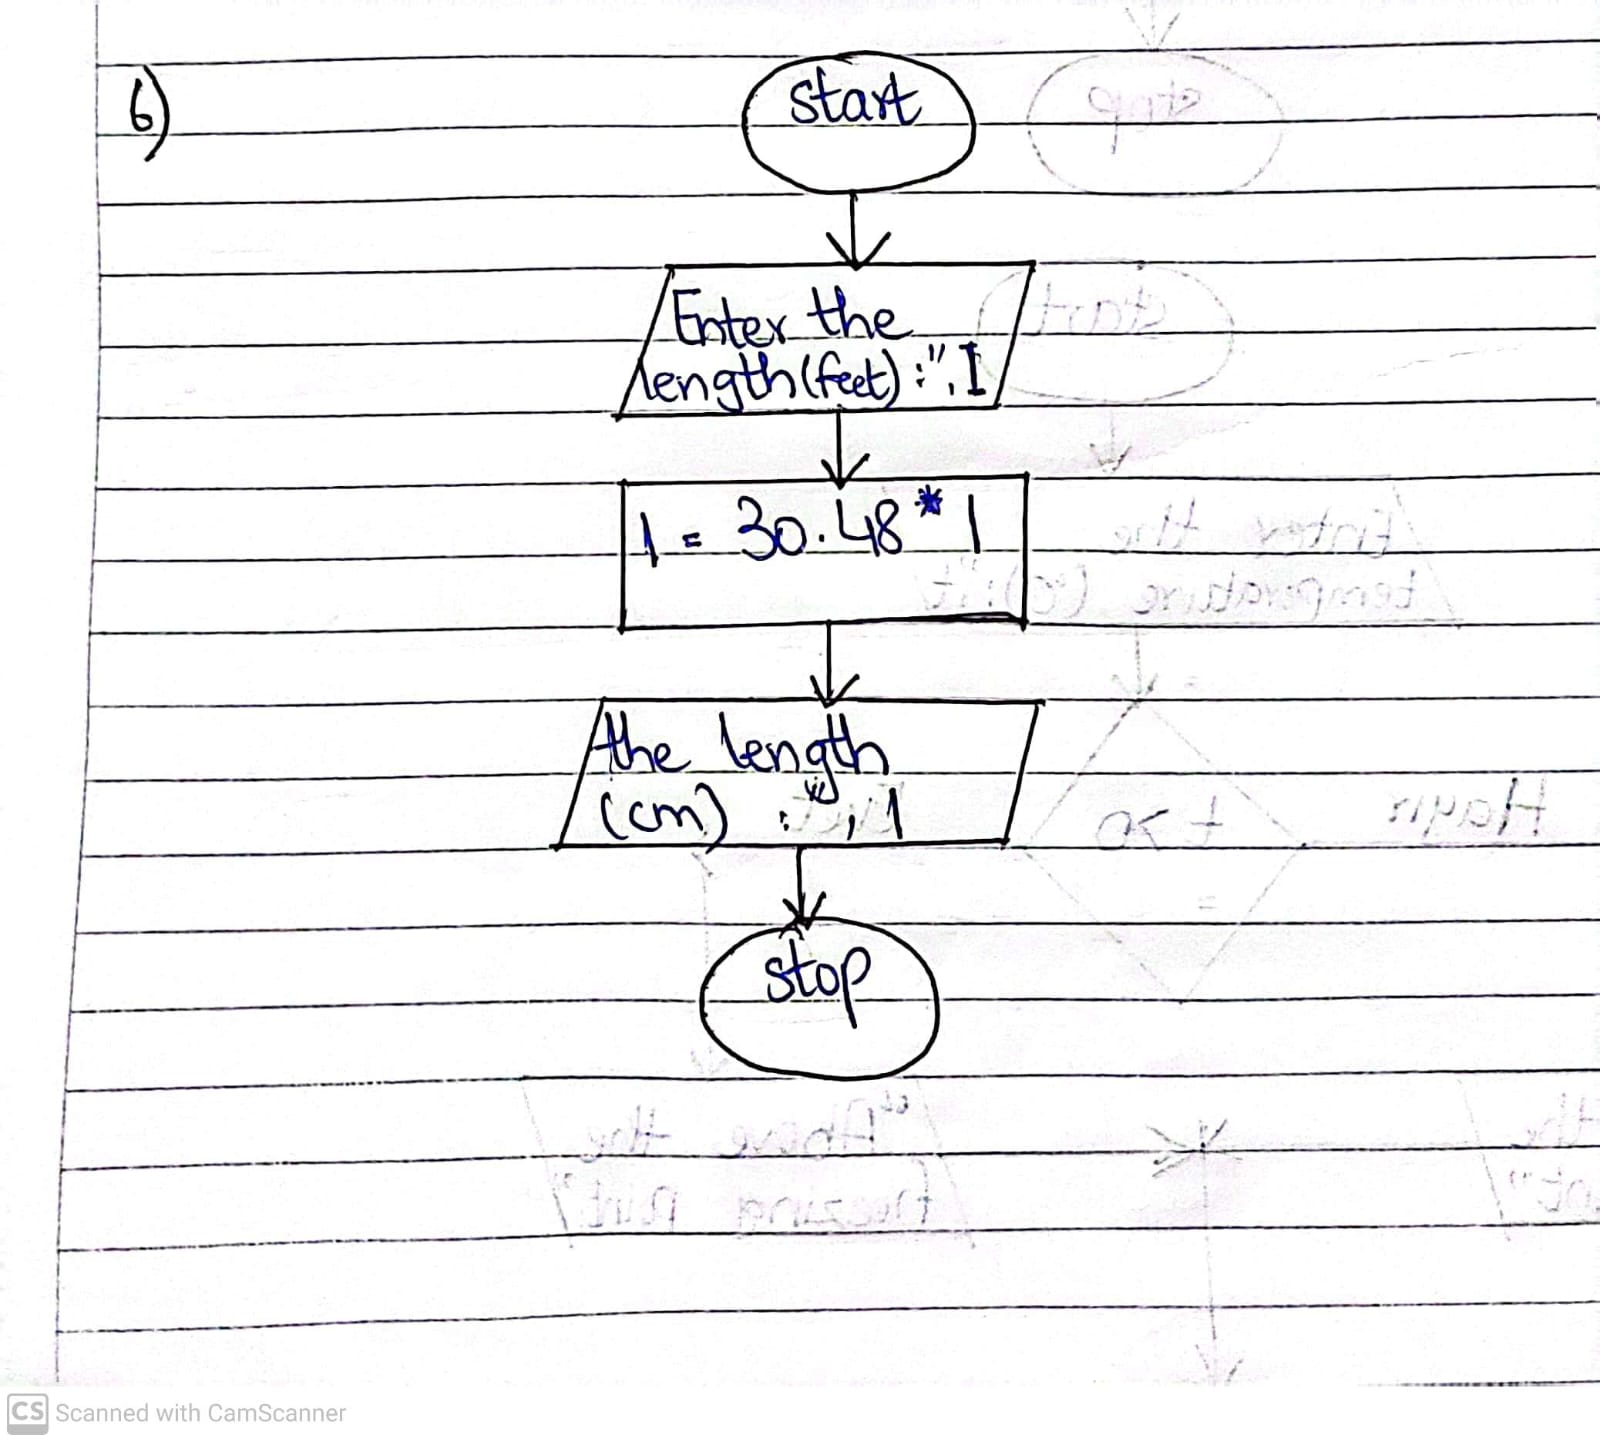 6)
start
Enter the
length(feet):",I
l = 30.48 * l
the length
(cm) :",l
stop
CS Scanned with CamScanner